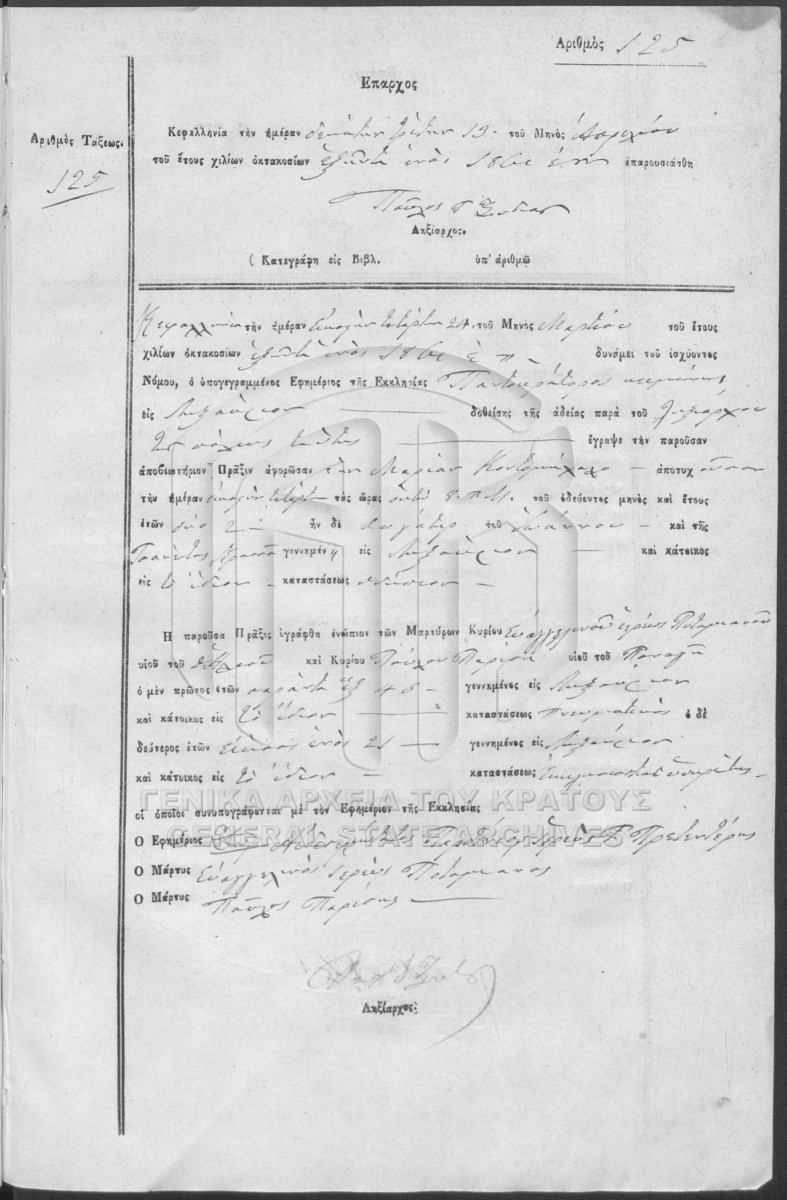 Αριθμὸς 125
Επαρχος
Αριθμὸς Τάξεως.
125
Κεφαλληνία τὴν ἡμέραν δεκάτην τρίτην 13. τοῦ Μηνὸς Ἀπριλίου
τοῦ ἔτους χιλίων ὀκτακοσίων ἑξῆντα ἑνὸς 1861 ἐπαρουσιάσθη
Παῦλος
Ληξίαρχος.
( Κατεγράφη εἰς Βιβλ. ὑπ' ἀριθμῷ
Κεφαλληνία τὴν ἡμέραν εἰκοστὴν τετάρτην 24. τοῦ Μηνὸς Μαρτίου τοῦ ἔτους
χιλίων ὀκτακοσίων ἑξῆντα ἑνὸς 1861 δυνάμει τοῦ ἰσχύοντος
Νόμου, ὁ ὑπογεγραμμένος Εφημέριος τῆς Εκκλησίας Παντοκράτορος
εἰς Ληξούριον δοθείσης τῆς ἀδείας παρὰ τοῦ Ληξιάρχου
τῆς πόλεως ταύτης ἔγραψε τὴν παροῦσαν
ἀποβιωτήριον Πρᾶξιν ἀφορῶσαν τὴν Μαρίαν ἀποτυχοῦσαν
τὴν ἡμέραν εἰκοστὴν τετάρτην τὰς ὥρας ὀκτὼ 8. Π.Μ. τοῦ ὁδεύοντος μηνὸς καὶ ἔτους
ἐτῶν δύο 2 ἦν δὲ θυγάτηρ τοῦ Ἰωάννου καὶ τῆς
γεννημένη εἰς Ληξούριον καὶ κάτοικος
εἰς τὸ ἴδιον καταστάσεως
Η παροῦσα Πρᾶξις ἐγράφθη ἐνώπιον τῶν Μαρτύρων Κυρίου Εὐαγγελινοῦ ἱερέως Ποταμιάνου
υἱοῦ τοῦ καὶ Κυρίου Παύλου Παρίση υἱοῦ τοῦ Παναγῆ
ὁ μὲν πρῶτος ἐτῶν σαράντα ἓξ 46 γεννημένος εἰς Ληξούριον
καὶ κάτοικος εἰς τὸ ἴδιον καταστάσεως Πνευματικὸς ὁ δὲ
δεύτερος ἐτῶν εἴκοσι ἑνὸς 21 γεννημένος εἰς Ληξούριον
καὶ κάτοικος εἰς τὸ ἴδιον καταστάσεως ὑπηρέτης
ΓΕΝΙΚΑ ΑΡΧΕΙΑ ΤΟΥ ΚΡΑΤΟΥΣ
οἱ ὁποῖοι συνυπογράφονται μὲ τὸν Εφημέριον τῆς Εκκλησίας
GENERAL STATE ARCHIVES
Ο Εφημέριος Ἱερεὺς Πρετεντέρης
Ο Μάρτυς Εὐαγγελινὸς Ἱερεὺς Ποταμιάνος
Ο Μάρτυς Παῦλος Παρίσης
Ληξίαρχος: